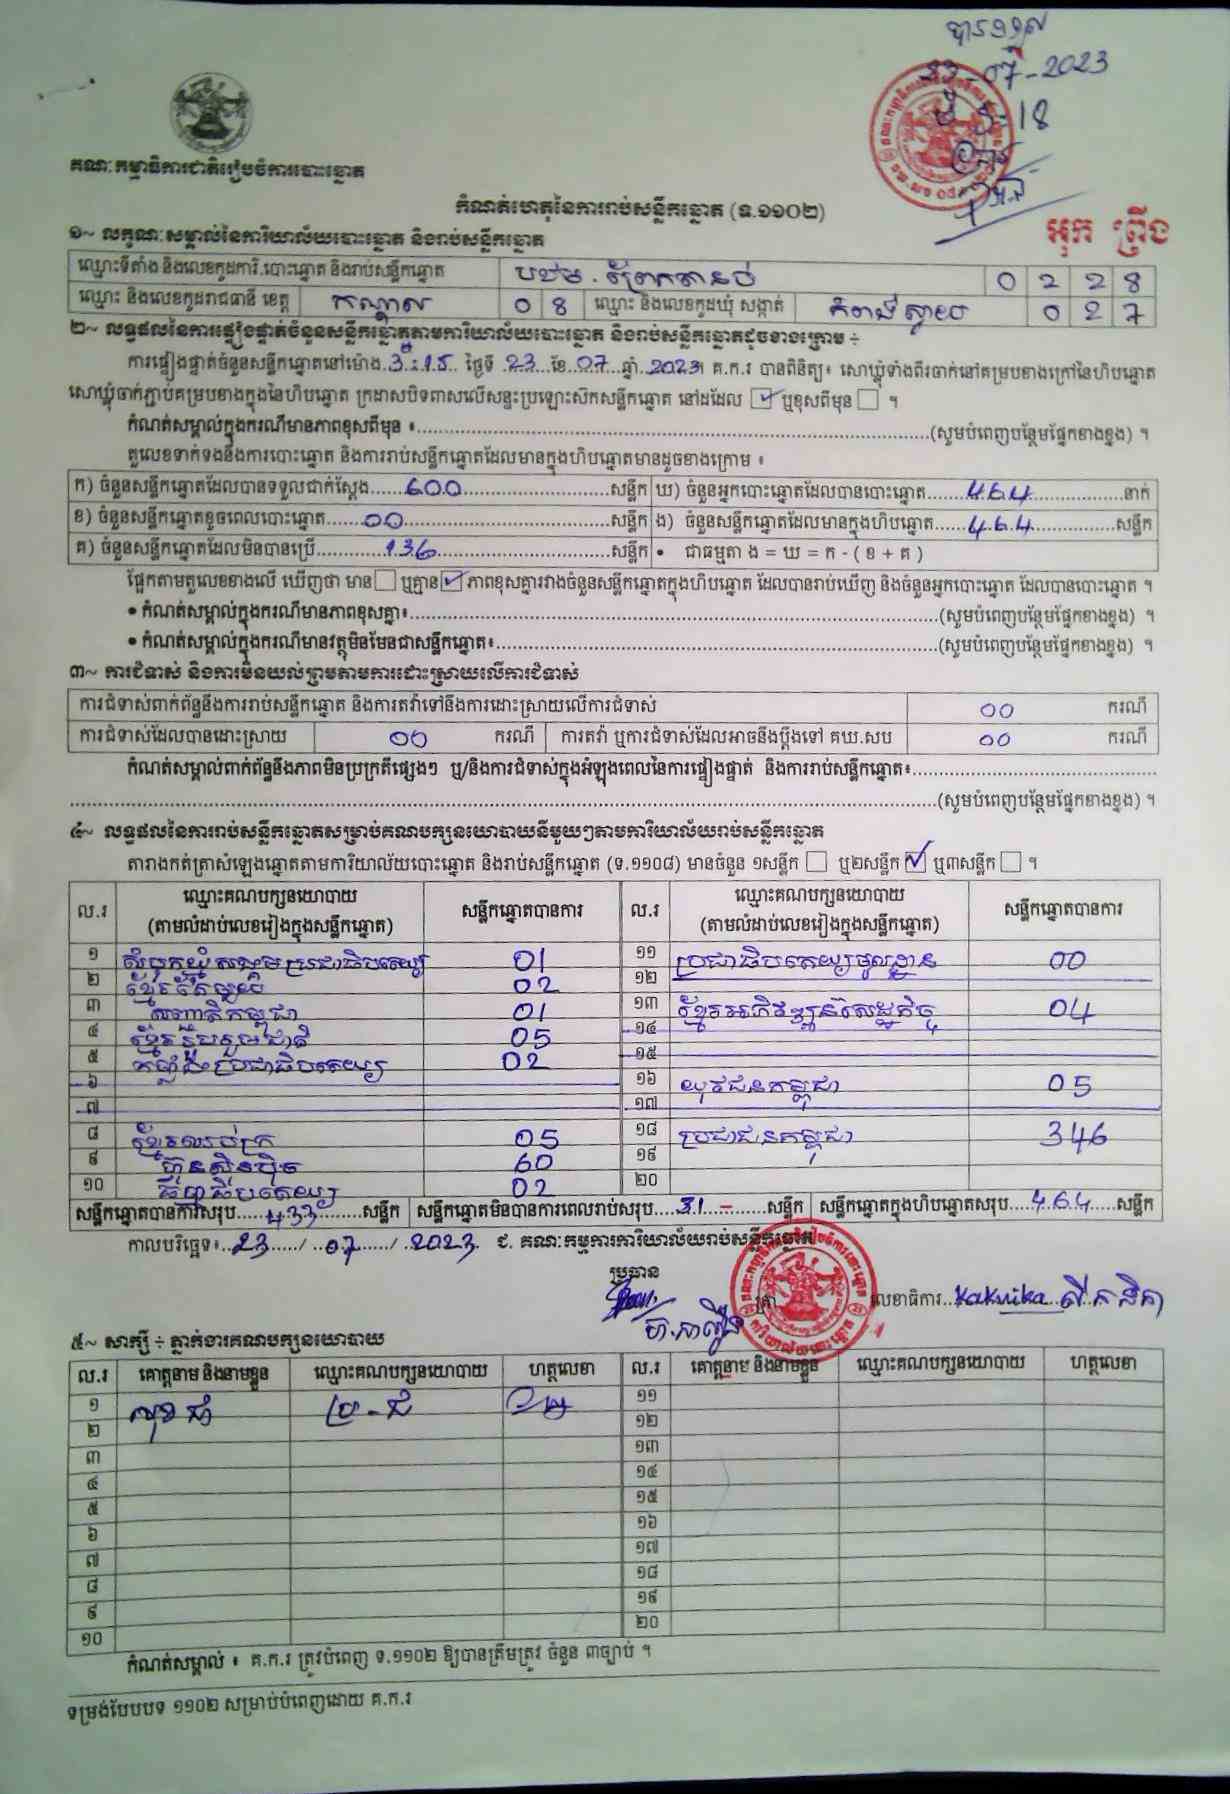 បានទទួល
23-07-2023
18
គណៈកម្មាធិការជាតិរៀបចំការបោះឆ្នោត
កំណត់ហេតុនៃការរាប់សន្លឹកឆ្នោត (ទ.១១០២)
អុក ព្រឹង
១~ លក្ខណៈសម្គាល់នៃការិយាល័យបោះឆ្នោត និងរាប់សន្លឹកឆ្នោត
ឈ្មោះទីតាំង និងលេខកូដការិ.បោះឆ្នោត និងរាប់សន្លឹកឆ្នោត បឋម. ព្រែកតានប់ 0 2 2 8
ឈ្មោះ និងលេខកូដរាជធានី ខេត្ត កណ្តាល 0 8 ឈ្មោះ និងលេខកូដឃុំ សង្កាត់ 0 2 7
២~ លទ្ធផលនៃការផ្ទៀងផ្ទាត់ចំនួនសន្លឹកឆ្នោតតាមការិយាល័យបោះឆ្នោត និងរាប់សន្លឹកឆ្នោតដូចខាងក្រោម ÷
ការផ្ទៀងផ្ទាត់ចំនួនសន្លឹកឆ្នោតនៅម៉ោង 3:15 ថ្ងៃទី 23 ខែ 07 ឆ្នាំ 2023 គ.ក.រ បានពិនិត្យ៖ សោឃ្លុំទាំងពីរចាក់នៅគម្របខាងក្រៅនៃហិបឆ្នោត
សោឃ្លុំចាក់ភ្ជាប់គម្របខាងក្នុងនៃហិបឆ្នោត ក្រដាសបិទពាសលើសន្ទះប្រឡោះស៊កសន្លឹកឆ្នោត នៅដដែល ☑ ឬខុសពីមុន ☐ ។
កំណត់សម្គាល់ក្នុងករណីមានភាពខុសពីមុន ៖ (សូមបំពេញបន្ថែមផ្នែកខាងខ្នង) ។
តួលេខទាក់ទងនឹងការបោះឆ្នោត និងការរាប់សន្លឹកឆ្នោតដែលមានក្នុងហិបឆ្នោតមានដូចខាងក្រោម ៖
ក) ចំនួនសន្លឹកឆ្នោតដែលបានទទួលជាក់ស្តែង 600 សន្លឹក ឃ) ចំនួនអ្នកបោះឆ្នោតដែលបានបោះឆ្នោត 464 នាក់
ខ) ចំនួនសន្លឹកឆ្នោតខូចពេលបោះឆ្នោត 00 សន្លឹក ង) ចំនួនសន្លឹកឆ្នោតដែលមានក្នុងហិបឆ្នោត 464 សន្លឹក
គ) ចំនួនសន្លឹកឆ្នោតដែលមិនបានប្រើ 136 សន្លឹក • ជាធម្មតា ង = ឃ = ក - ( ខ + គ )
ផ្អែកតាមតួលេខខាងលើ ឃើញថា មាន ☐ ឬគ្មាន ☑ ភាពខុសគ្នារវាងចំនួនសន្លឹកឆ្នោតក្នុងហិបឆ្នោត ដែលបានរាប់ឃើញ និងចំនួនអ្នកបោះឆ្នោត ដែលបានបោះឆ្នោត ។
• កំណត់សម្គាល់ក្នុងករណីមានភាពខុសគ្នា៖ (សូមបំពេញបន្ថែមផ្នែកខាងខ្នង) ។
• កំណត់សម្គាល់ក្នុងករណីមានវត្ថុមិនមែនជាសន្លឹកឆ្នោត៖ (សូមបំពេញបន្ថែមផ្នែកខាងខ្នង) ។
៣~ ការជំទាស់ និងការមិនយល់ព្រមតាមការដោះស្រាយលើការជំទាស់
ការជំទាស់ពាក់ព័ន្ធនឹងការរាប់សន្លឹកឆ្នោត និងការតវ៉ាទៅនឹងការដោះស្រាយលើការជំទាស់ 00 ករណី
ការជំទាស់ដែលបានដោះស្រាយ 00 ករណី ការតវ៉ា ឬការជំទាស់ដែលអាចនឹងប្តឹងទៅ គឃ.សប 00 ករណី
កំណត់សម្គាល់ពាក់ព័ន្ធនឹងភាពមិនប្រក្រតីផ្សេងៗ ឬ/និងការជំទាស់ក្នុងអំឡុងពេលនៃការផ្ទៀងផ្ទាត់ និងការរាប់សន្លឹកឆ្នោត៖
(សូមបំពេញបន្ថែមផ្នែកខាងខ្នង) ។
៤~ លទ្ធផលនៃការរាប់សន្លឹកឆ្នោតសម្រាប់គណបក្សនយោបាយនីមួយៗតាមការិយាល័យរាប់សន្លឹកឆ្នោត
តារាងកត់ត្រាសំឡេងឆ្នោតតាមការិយាល័យបោះឆ្នោត និងរាប់សន្លឹកឆ្នោត (ទ.១១០៨) មានចំនួន ១សន្លឹក ☐ ឬ២សន្លឹក ☑ ឬ៣សន្លឹក ☐ ។
ល.រ ឈ្មោះគណបក្សនយោបាយ (តាមលំដាប់លេខរៀងក្នុងសន្លឹកឆ្នោត) សន្លឹកឆ្នោតបានការ ល.រ ឈ្មោះគណបក្សនយោបាយ (តាមលំដាប់លេខរៀងក្នុងសន្លឹកឆ្នោត) សន្លឹកឆ្នោតបានការ
១ សំបុកឃ្មុំសង្គមប្រជាធិបតេយ្យ 01 ១១ ប្រជាធិបតេយ្យមូលដ្ឋាន 00
២ ខ្មែរតែមួយ 02 ១២
៣ សញ្ជាតិកម្ពុជា 01 ១៣ ខ្មែរអភិវឌ្ឍន៍សេដ្ឋកិច្ច 04
៤ ខ្មែររួបរួមជាតិ 05 ១៤
៥ កម្លាំងប្រជាធិបតេយ្យ 02 ១៥
៦ ១៦ យុវជនកម្ពុជា 05
៧ ១៧
៨ ខ្មែរឈប់ក្រ 05 ១៨ ប្រជាជនកម្ពុជា 346
៩ ហ៊្វុនស៊ិនប៉ិច 60 ១៩
១០ ធម្មាធិបតេយ្យ 02 ២០
សន្លឹកឆ្នោតបានការសរុប 433 សន្លឹក សន្លឹកឆ្នោតមិនបានការពេលរាប់សរុប 31 សន្លឹក សន្លឹកឆ្នោតក្នុងហិបឆ្នោតសរុប 464 សន្លឹក
កាលបរិច្ឆេទ៖ 23 / 07 / 2023 ជ. គណៈកម្មការការិយាល័យរាប់សន្លឹកឆ្នោត
ប្រធាន
ត្រា លេខាធិការ
៥~ សាក្សី ÷ ភ្នាក់ងារគណបក្សនយោបាយ
ល.រ គោត្តនាម និងនាមខ្លួន ឈ្មោះគណបក្សនយោបាយ ហត្ថលេខា ល.រ គោត្តនាម និងនាមខ្លួន ឈ្មោះគណបក្សនយោបាយ ហត្ថលេខា
១ ប្រ-ជ ១១
២ ១២
៣ ១៣
៤ ១៤
៥ ១៥
៦ ១៦
៧ ១៧
៨ ១៨
៩ ១៩
១០ ២០
កំណត់សម្គាល់ ៖ គ.ក.រ ត្រូវបំពេញ ទ.១១០២ ឱ្យបានត្រឹមត្រូវ ចំនួន ៣ច្បាប់ ។
ទម្រង់បែបបទ ១១០២ សម្រាប់បំពេញដោយ គ.ក.រ